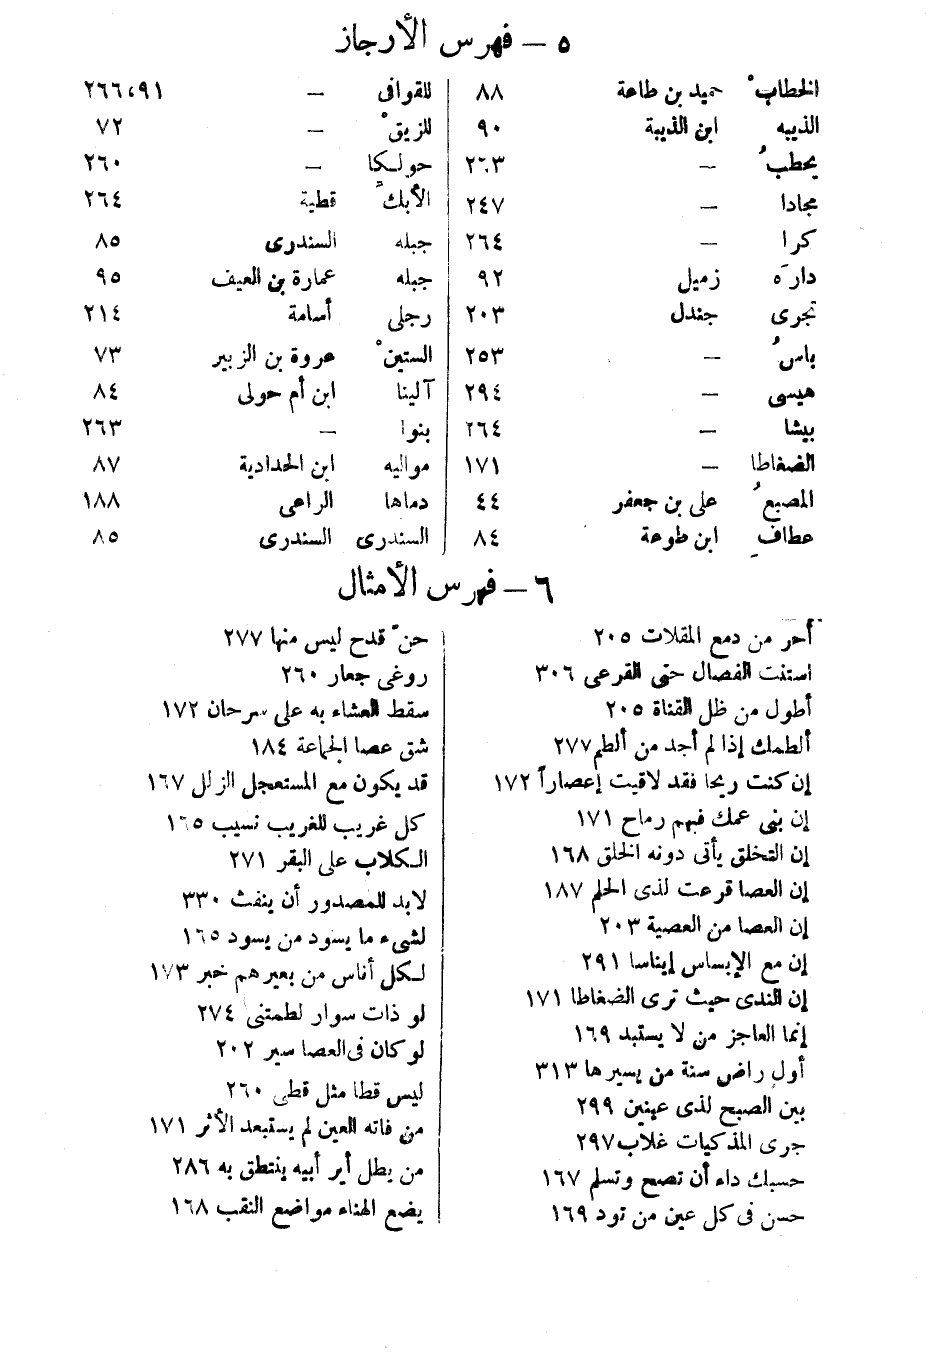 ٥ – فهرس الأرجاز
الخطابْ حميد بن طاعة ٨٨
الذيبه ابن الذيبة ٩٠
يحطبُ – ٢٦٣
مجادا – ٢٤٧
كرا – ٢٦٤
داره زميل ٩٢
تجرى جندل ٢٠٣
باسُ – ٢٥٣
هيسى – ٢٩٤
بيشا – ٢٦٤
الضغاطا – ١٧١
المصبعُ على بن جعفر ٤٤
عطافِ ابن طوعة ٨٤
للقوافى – ٩١،٢٦٦
للزيقْ – ٧٢
حولكا – ٢٦٠
الأبكّ قطية ٢٦٤
جبله السندرى ٨٥
جبله عمارة بن العيف ٩٥
رجلى أسامة ٢١٤
الستينْ عروة بن الزبير ٧٣
آلينا ابن أم حولى ٨٤
بنوا – ٢٦٣
مواليه ابن الحدادية ٨٧
دماها الراعى ١٨٨
السندرى السندرى ٨٥
٦ – فهرس الأمثال
أحر من دمع المقلات ٢٠٥
استنت الفصال حتى القرعى ٣٠٦
أطول من ظل القناة ٢٠٥
ألطمك إذا لم أجد من ألطم ٢٧٧
إن كنت ريحا فقد لاقيت إعصاراً ١٧٢
إن بنى عمك فيهم رماح ١٧١
إن التخلق يأتى دونه الخلق ١٦٨
إن العصا قرعت لذى الحلم ١٨٧
إن العصا من العصية ٢٠٣
إن مع الإبساس إيناسا ٢٩١
إن الندى حيث ترى الضغاطا ١٧١
إنما العاجز من لا يستبد ١٦٩
أول راض سنة من يسيرها ٣١٣
بين الصبح لذى عينين ٢٩٩
جرى المذكيات غلاب ٢٩٧
حسبك داء أن تصح وتسلم ١٦٧
حسن فى كل عين من تود ١٦٩
حنّ قدح ليس منها ٢٧٧
روغى جعار ٢٦٠
سقط العشاء به على سرحان ١٧٢
شق عصا الجماعة ١٨٤
قد يكون مع المستعجل الزلل ١٦٧
كل غريب للغريب نسيب ١٦٥
الكلاب على البقر ٢٧١
لابد للمصدور أن ينفث ٣٣٠
لشىء ما يسود من يسود ١٦٥
لكل أناس من بعيرهم خبر ١٧٣
لو ذات سوار لطمتنى ٢٧٤
لو كان فى العصا سير ٢٠٢
ليس قطا مثل قطى ٢٦٠
من فاته العين لم يستبعد الأثر ١٧١
من يطل أير أبيه ينتطق به ٢٨٦
يضع الهناء مواضع النقب ١٦٨